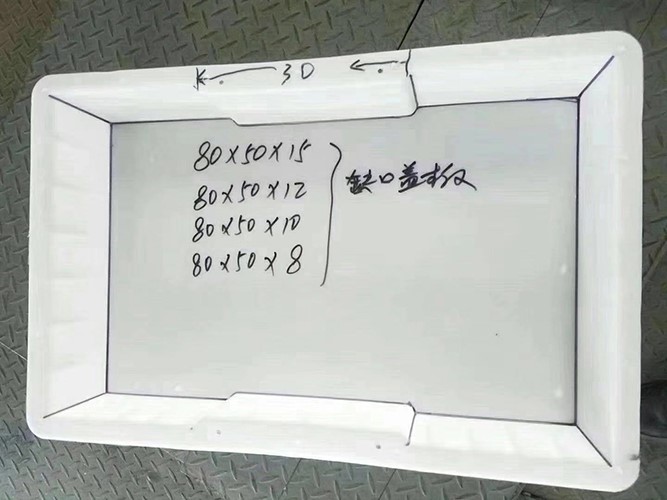 30
80×50×15
80×50×12
80×50×10
80×50×8
缺口盖板